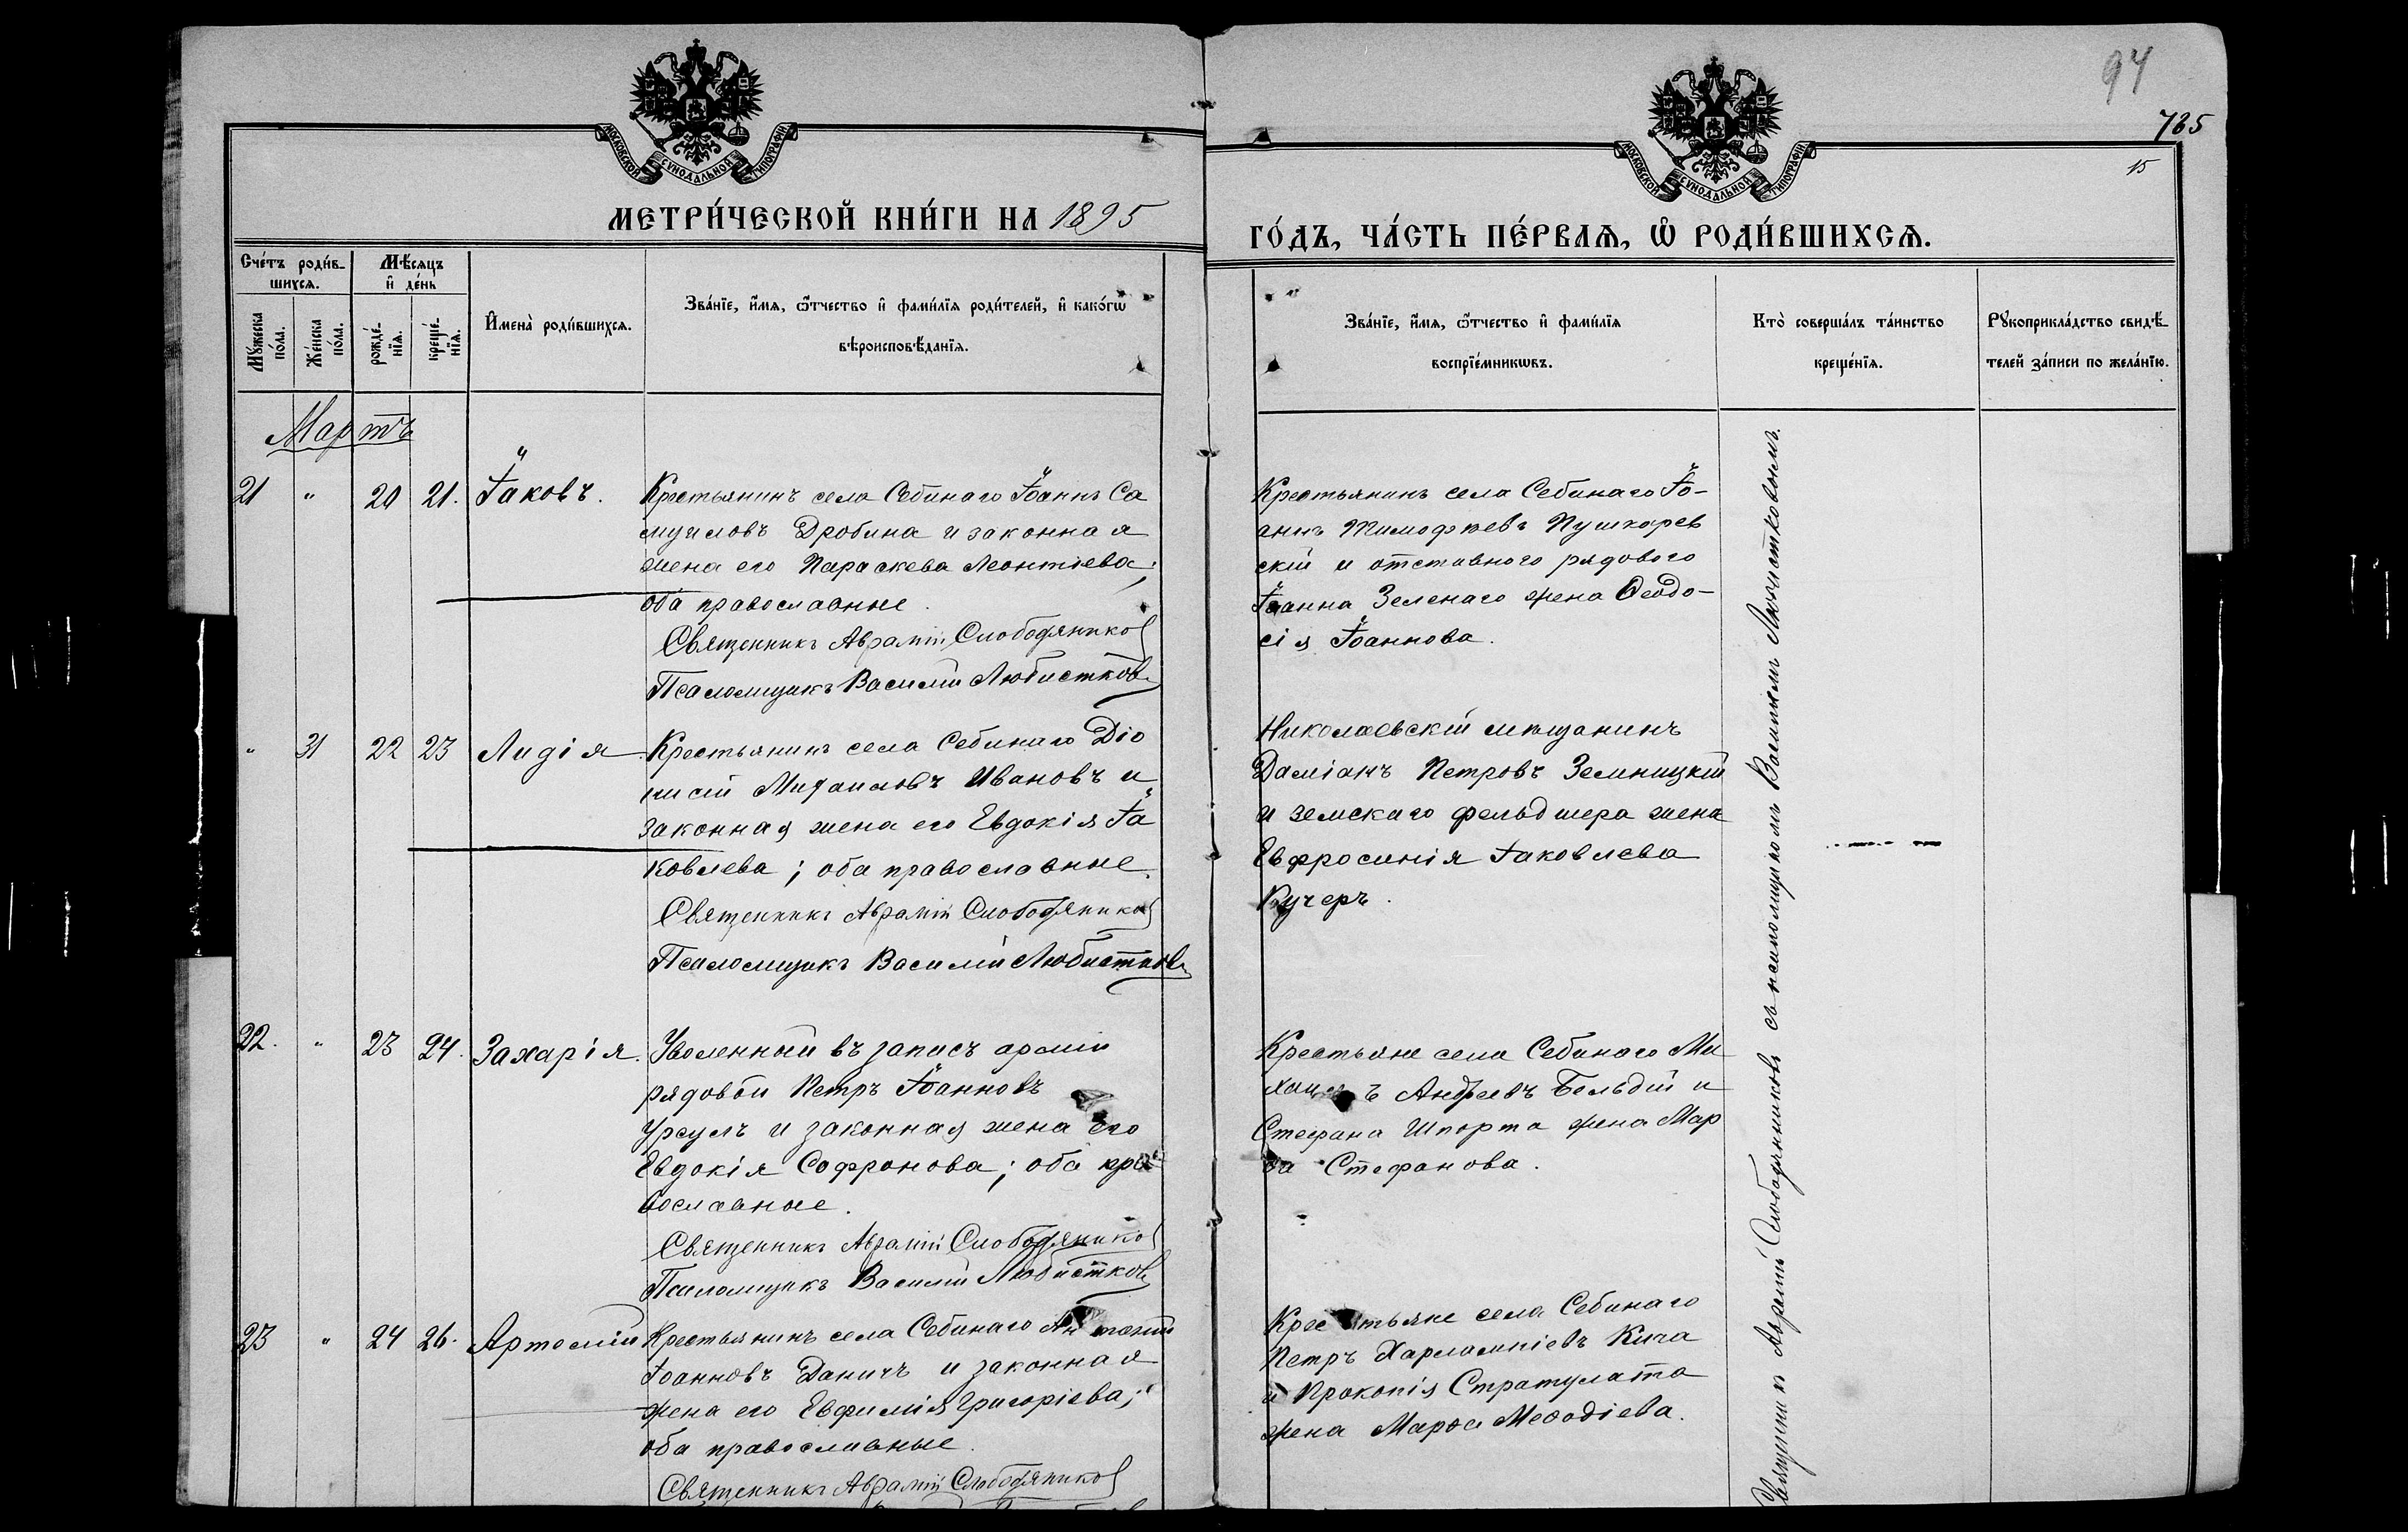 94
735
15
МОСКОВСКОЙ СѴНОДАЛЬНОЙ ТИПОГРАФІИ
МОСКОВСКОЙ СѴНОДАЛЬНОЙ ТИПОГРАФІИ
МЕТРИ́ЧЕСКОЙ КНИ́ГИ НА 1895
ГО́ДЪ, ЧА́СТЬ ПЕ́РВАѦ, Ѡ҆ РОДИ́ВШИХСѦ.
Сче́тъ роди́в-
шихсѧ.
Мꙋ́жеска по́ла.
Же́нска по́ла.
Мѣ́сѧцъ
и҆ де́нь
рожде́-нїѧ.
креще́-нїѧ.
И҆мена̀ роди́вшихсѧ.
Зва́нїе, и҆́мѧ, ѻ҆́тчество и҆ фами́лїѧ роди́телей, и҆ како́гѡ
вѣроисповѣ́данїѧ.
Зва́нїе, и҆́мѧ, ѻ҆́тчество и҆ фами́лїѧ
воспрїе́мникѡвъ.
Кто̀ соверша́лъ та́инство
креще́нїѧ.
Рꙋкоприкла́дство свидѣ́-
телей за́писи по жела́нїю.
Мартъ
21 " 20 21. Іаковъ.
Крестьянинъ села Себинаго Іоаннъ Са
муиловъ Дробина и законная
жена его Параскева Леонтіева;
оба православные.
Священникъ Аврамій Слободяников
Псаломщикъ Василій Любистков
Крестьянинъ села Себинаго Іо-
аннъ Тимофѣевъ Пушкарев
скій и отставного рядового
Іоанна Зеленаго жена Ѳеодо-
сія Іоаннова.
" 31 22 23 Лидія.
Крестьянинъ села Себинаго Діо
нисій Михаиловъ Ивановъ и
законная жена его Евдокія Іа
ковлева; оба православные.
Священникъ Аврамій Слободяников
Псаломщикъ Василій Любистков
Николаевскій мѣщанинъ
Даміанъ Петровъ Земницкій
и земскаго фельдшера жена
Евфросинія Іаковлева
Кучеръ.
22. " 23 24. Захарія.
Уволенный въ запасъ арміи
рядовой Петръ Іоанновъ
Урсулъ и законная жена его
Евдокія Софронова; оба пра
вославные.
Священникъ Аврамій Слободяников
Псаломщикъ Василій Любистков
Крестьяне села Себинаго Ми
хаилъ Андреевъ Бельдій и
Стефана Шпорта жена Мар
ѳа Стефанова.
23 " 24 26. Артемій
Крестьянинъ села Себинаго Антоній
Іоанновъ Даничъ и законная
жена его Евфимія Григоріева;
оба православные.
Священникъ Аврамій Слободяников
Крестьяне села Себинаго
Петръ Харлампіевъ Кича
и Прокопія Стратулата
жена Марѳа Меѳодіева.
Священникъ Аврамій Слободяниковъ съ псаломщикомъ Василіемъ Любистковымъ.